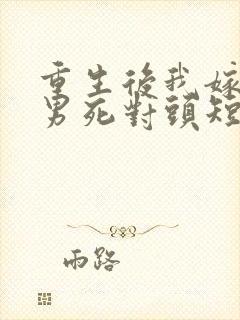 重生後我嫁
男死對頭短
雨路